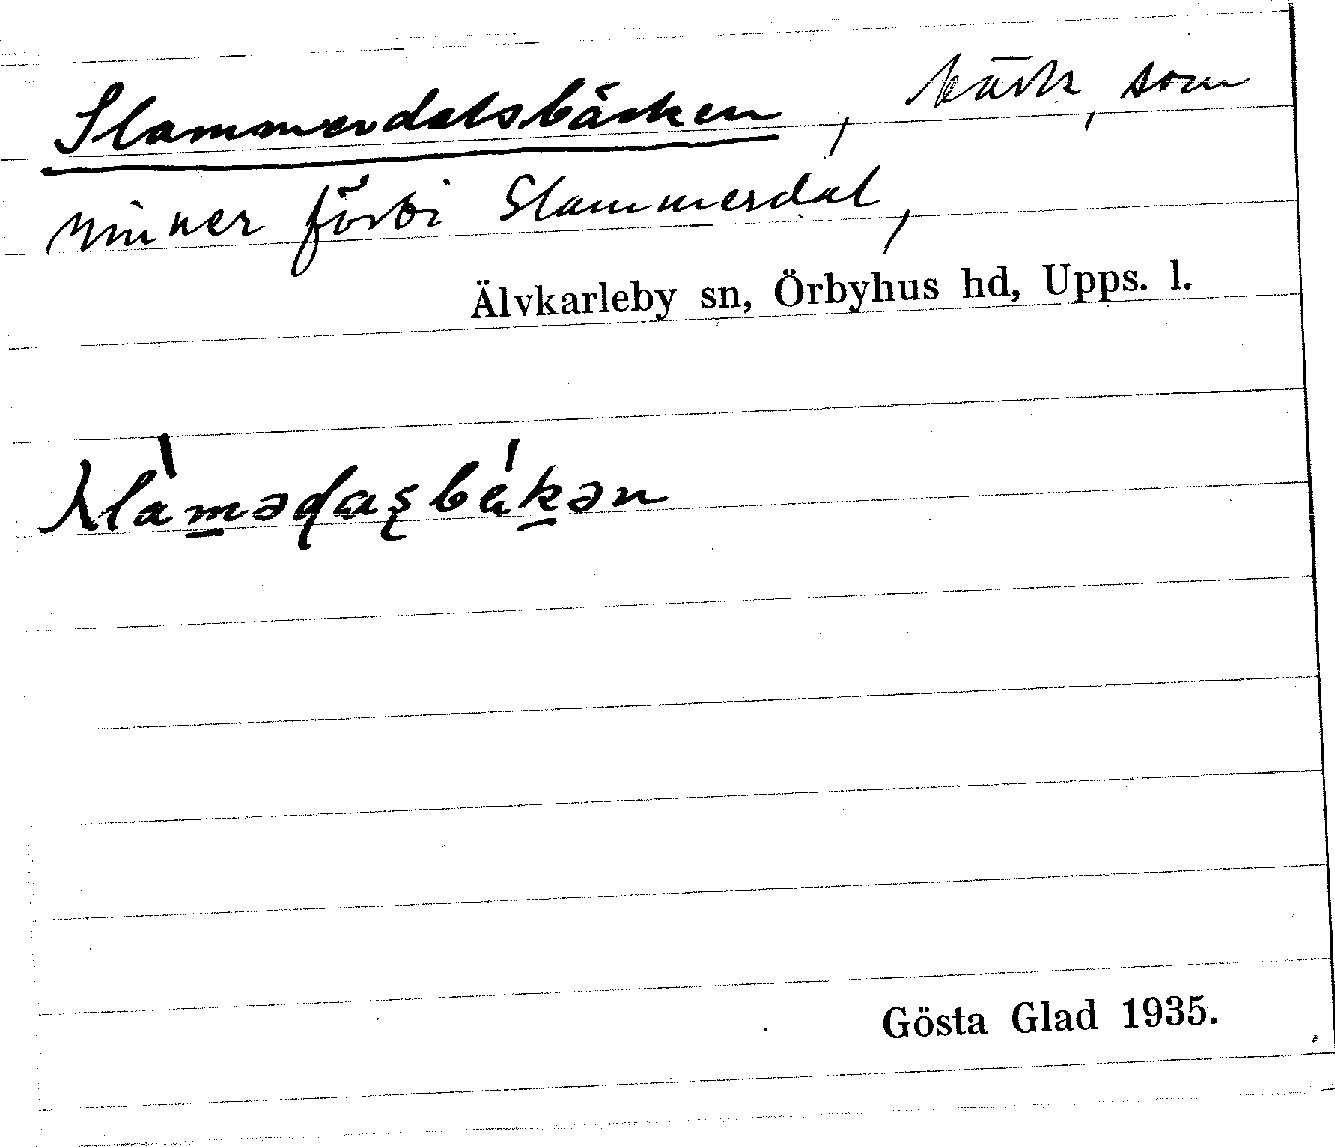 Slammerdalsbäcken, bäck, som
rinner förbi Slammerdal,
Älvkarleby sn, Örbyhus hd, Upps. l.
Gösta Glad 1935.